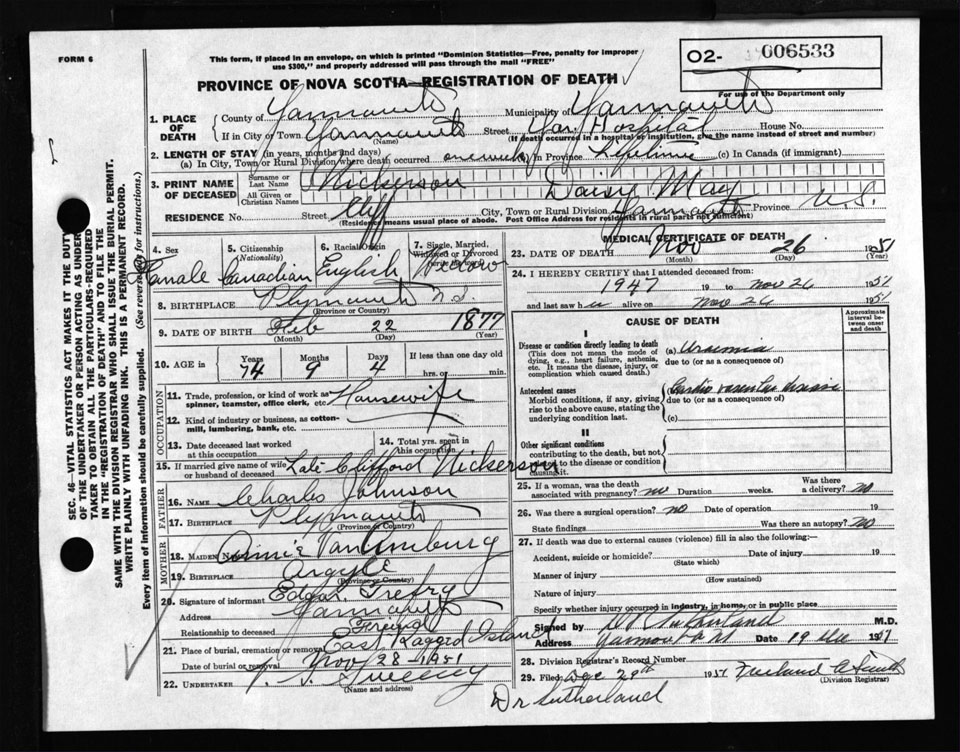 FORM 6
This form, if placed in an envelope, on which is printed "Dominion Statistics—Free, penalty for improper
use $300," and properly addressed will pass through the mail "FREE"
02- 006533
For use of the Department only
PROVINCE OF NOVA SCOTIA—REGISTRATION OF DEATH
1. PLACE OF DEATH
County of Yarmouth Municipality of Yarmouth
If in City or Town Yarmouth (Name) Street Yar. Hospital House No.
(If death occurred in a hospital or institution, give the name instead of street and number)
2. LENGTH OF STAY (in years, months and days)
(a) In City, Town or Rural Division where death occurred one week (b) In Province Lifetime (c) In Canada (if immigrant)
3. PRINT NAME OF DECEASED
Surname or Last Name Nickerson
All Given or Christian Names Daisy May
RESIDENCE No. Street Cliff City, Town or Rural Division Yarmouth Province N.S.
(Residence means usual place of abode. Post Office Address for residents in rural parts not sufficient)
4. Sex Female
5. Citizenship (Nationality) Canadian
6. Racial Origin English
7. Single, Married, Widowed or Divorced (write the word) Widow
8. BIRTHPLACE Plymouth N.S.
(Province or Country)
9. DATE OF BIRTH Feb 22 1877
(Month) (Day) (Year)
10. AGE Years 74 Months 9 Days 4 If less than one day old hrs. or min.
OCCUPATION
11. Trade, profession, or kind of work as spinner, teamster, office clerk, etc. Housewife
12. Kind of industry or business, as cotton-mill, lumbering, bank, etc.
13. Date deceased last worked at this occupation
14. Total yrs. spent in this occupation
15. If married give name of wife or husband of deceased Late Clifford Nickerson
FATHER
16. NAME Charles Johnson
17. BIRTHPLACE Plymouth
(Province or Country)
MOTHER
18. MAIDEN NAME Annie VanAmburg
19. BIRTHPLACE Argyle
(Province or Country)
20. Signature of informant Edgar L. Trefry
Address Yarmouth
Relationship to deceased Friend
21. Place of burial, cremation or removal East Ragged Island
Date of burial or removal Nov 28 - 1951
22. UNDERTAKER V. S. Sweeny
(Name and address)
MEDICAL CERTIFICATE OF DEATH
23. DATE OF DEATH Nov 26 1951
(Month) (Day)
24. I HEREBY CERTIFY that I attended deceased from
1947 19 to Nov 26 1951
and last saw h er alive on Nov 26 1951
CAUSE OF DEATH
Approximate interval between onset and death
I
Disease or condition directly leading to death
(This does not mean the mode of dying, e.g., heart failure, asthenia, etc. It means the disease, injury, or complication which caused death.)
(a) Uraemia
due to (or as a consequence of)
Antecedent causes
Morbid conditions, if any, giving rise to the above cause, stating the underlying condition last.
Cardio vascular disease
due to (or as a consequence of)
(c)
II
Other significant conditions
contributing to the death, but not related to the disease or condition causing it.
25. If a woman, was the death associated with pregnancy? no Duration weeks. Was there a delivery? no
26. Was there a surgical operation? no Date of operation 19
State findings Was there an autopsy? no
27. If death was due to external causes (violence) fill in also the following:—
Accident, suicide or homicide? Date of injury 19
(State which)
Manner of injury
(How sustained)
Nature of injury
Specify whether injury occurred in industry, in home, or in public place
Signed by Sutherland M.D.
Address Yarmouth NS Date 19 Dec 1951
28. Division Registrar's Record Number
29. Filed Dec 29th 1951 Smith
(Division Registrar)
Dr Sutherland
SEC. 46—VITAL STATISTICS ACT MAKES IT THE DUTY
OF THE UNDERTAKER OR PERSON ACTING AS UNDER-
TAKER TO OBTAIN ALL THE PARTICULARS REQUIRED
IN THE "REGISTRATION OF DEATH" AND TO FILE THE
SAME WITH THE DIVISION REGISTRAR WHO SHALL ISSUE THE BURIAL PERMIT.
WRITE PLAINLY WITH UNFADING INK. THIS IS A PERMANENT RECORD.
Every item of Information should be carefully supplied. (See reverse side for instructions.)